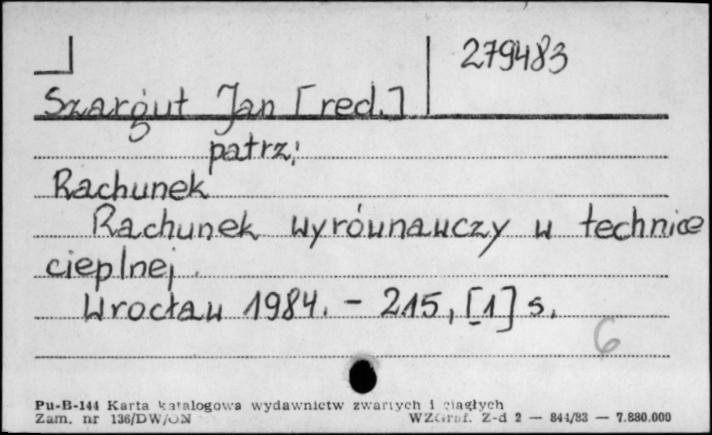 279483
Szargut Jan [red.]
patrz:
Rachunek
Rachunek wyrównawczy w technice
cieplnej.
Wrocław 1984. – 215, [1] s.
6
Pu-B-144 Karta katalogowa wydawnictw zwartych i ciągłych
Zam. nr 136/DW/ON WZGraf. Z-d 2 — 844/83 — 7.880.000